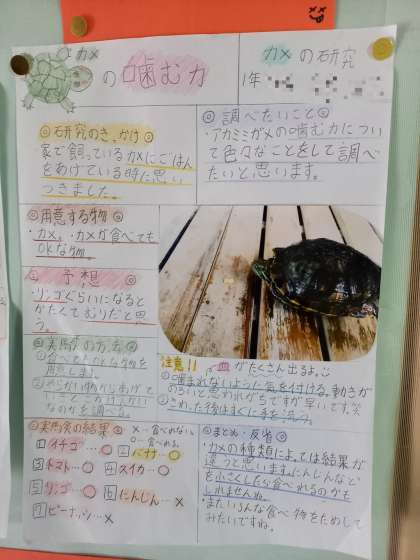 カメ
の噛む力
カメの研究
1年
◎研究のきっかけ◎
・家で飼っているカメにごはん
をあげている時に思い
つきました。
◎調べたいこと◎
・アカミミガメの噛む力につい
て色々なことをして調べ
たいと思います。
◎用意する物◎
・カメ。・カメが食べても
OKな物。
予想
・リンゴぐらいになると
かたくてむりだと思
う。
◎実験の方法◎
①食べてもOKな物を
用意します。
②やわらかい物からあげて
いきどこまでかたい
なのかを調べる。
注意!!
がたくさん出るよ。
①噛まれないように気を付ける。動きが
のろいと思われがちですが早いです。
②さわった後はすぐに手を洗う。
◎実験の結果◎
×…食べれない
○…食べれる
1 イチゴ…○
2 バナナ…○
3 トマト…○
4 スイカ…○
5 リンゴ…○
6 にんじん…×
7 ピーナッツ…×
◎まとめ・反省◎
・カメの種類によっては結果が
違うと思います。にんじんなど
を小さくしたら食べれるのかも
しれませんね。
・またいろんな食べ物をためして
みたいですね。